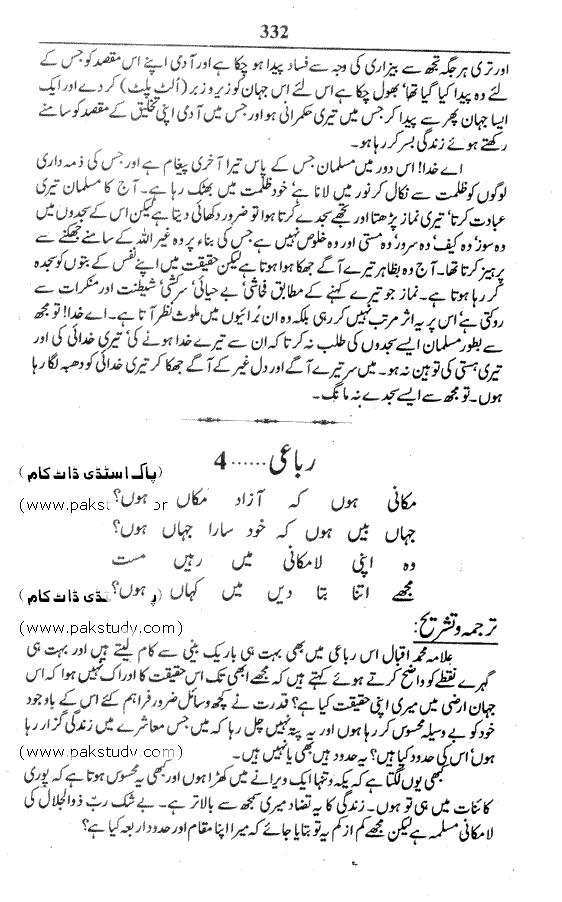 332
اور تری ہر جگہ تجھ سے بیزاری کی وجہ سے فساد پیدا ہو چکا ہے اور آدمی اپنے اس مقصد کو جس کے
لئے وہ پیدا کیا گیا تھا‘ بھول چکا ہے اس لئے اس جہان کو زیر و زبر (اُلٹ پلٹ) کر دے اور ایک
ایسا جہان پھر سے پیدا کر جس میں تیری حکمرانی ہو اور جس میں آدمی اپنی تخلیق کے مقصد کو سامنے
رکھتے ہوئے زندگی بسر کر رہا ہو۔
اے خدا! اس دور میں مسلمان جس کے پاس تیرا آخری پیغام ہے اور جس کی ذمہ داری
لوگوں کو ظلمت سے نکال کر نور میں لانا ہے‘ خود ظلمت میں بھٹک رہا ہے۔ آج کا مسلمان تیری
عبادت کرتا‘ تیری نماز پڑھتا اور تجھے سجدے کرتا ہوا تو ضرور دکھائی دیتا ہے لیکن اس کے سجدوں میں
وہ سوز‘ وہ کیف‘ وہ سرور‘ وہ مستی اور وہ خلوص نہیں ہے جس کی بناء پر وہ غیر اللہ کے سامنے جھکنے سے
پرہیز کرتا تھا۔ آج وہ بظاہر تیرے آگے جھکا ہوا ہوتا ہے لیکن حقیقت میں اپنے نفس کے بتوں کو سجدہ
کر رہا ہوتا ہے۔ نماز جو تیرے کہنے کے مطابق فحاشی‘ بے حیائی‘ سرکشی‘ شیطنت اور منکرات سے
روکتی ہے‘ اس پر یہ اثر مرتب نہیں کر رہی بلکہ وہ ان بُرائیوں میں ملوث نظر آتا ہے۔ اے خدا! تو مجھ
سے بطور مسلمان ایسے سجدوں کی طلب نہ کر تا کہ ان سے تیرے خدا ہونے کی‘ تیری خدائی کی اور
تیری ہستی کی توہین نہ ہو۔ میں سر تیرے آگے اور دل غیر کے آگے جھکا کر تیری خدائی کو دھبہ لگا رہا
ہوں۔ تو مجھ سے ایسے سجدے نہ مانگ۔
رباعی ...... 4
(پاک اسٹڈی ڈاٹ کام)
مکانی ہوں کہ آزاد مکاں ہوں؟
(www.pakst
جہاں بیں ہوں کہ خود سارا جہاں ہوں؟
وہ اپنی لامکانی میں رہیں مست
مجھے اتنا بتا دیں میں کہاں ہوں؟
ڈی ڈاٹ کام)
ترجمہ و تشریح:
(www.pakstudy.com)
علامہ محمد اقبال اس رباعی میں بھی بہت ہی باریک بینی سے کام لیتے ہیں اور بہت ہی
گہرے نقطے کو واضح کرتے ہوئے کہتے ہیں کہ مجھے ابھی تک اس حقیقت کا ادراک نہیں ہوا کہ اس
جہان ارضی میں میری اپنی حقیقت کیا ہے؟ قدرت نے کچھ وسائل ضرور فراہم کئے اس کے باوجود
خود کو بے وسیلہ محسوس کر رہا ہوں اور یہ پتہ نہیں چل رہا کہ میں جس معاشرے میں زندگی گزار رہا
ہوں‘ اس کی حدود کیا ہیں؟ یہ حدود ہیں بھی یا نہیں ہیں۔
(www.pakstudy.com)
کبھی یوں لگتا ہے کہ یکہ و تنہا ایک ویرانے میں کھڑا ہوں اور کبھی یہ محسوس ہوتا ہے کہ پوری
کائنات میں ہی تو ہوں۔ زندگی کا یہ تضاد میری سمجھ سے بالاتر ہے۔ بے شک ربّ ذوالجلال کی
لامکانی مسلمہ ہے لیکن مجھے کم از کم یہ تو بتایا جائے کہ میرا اپنا مقام اور حدود اربعہ کیا ہے؟